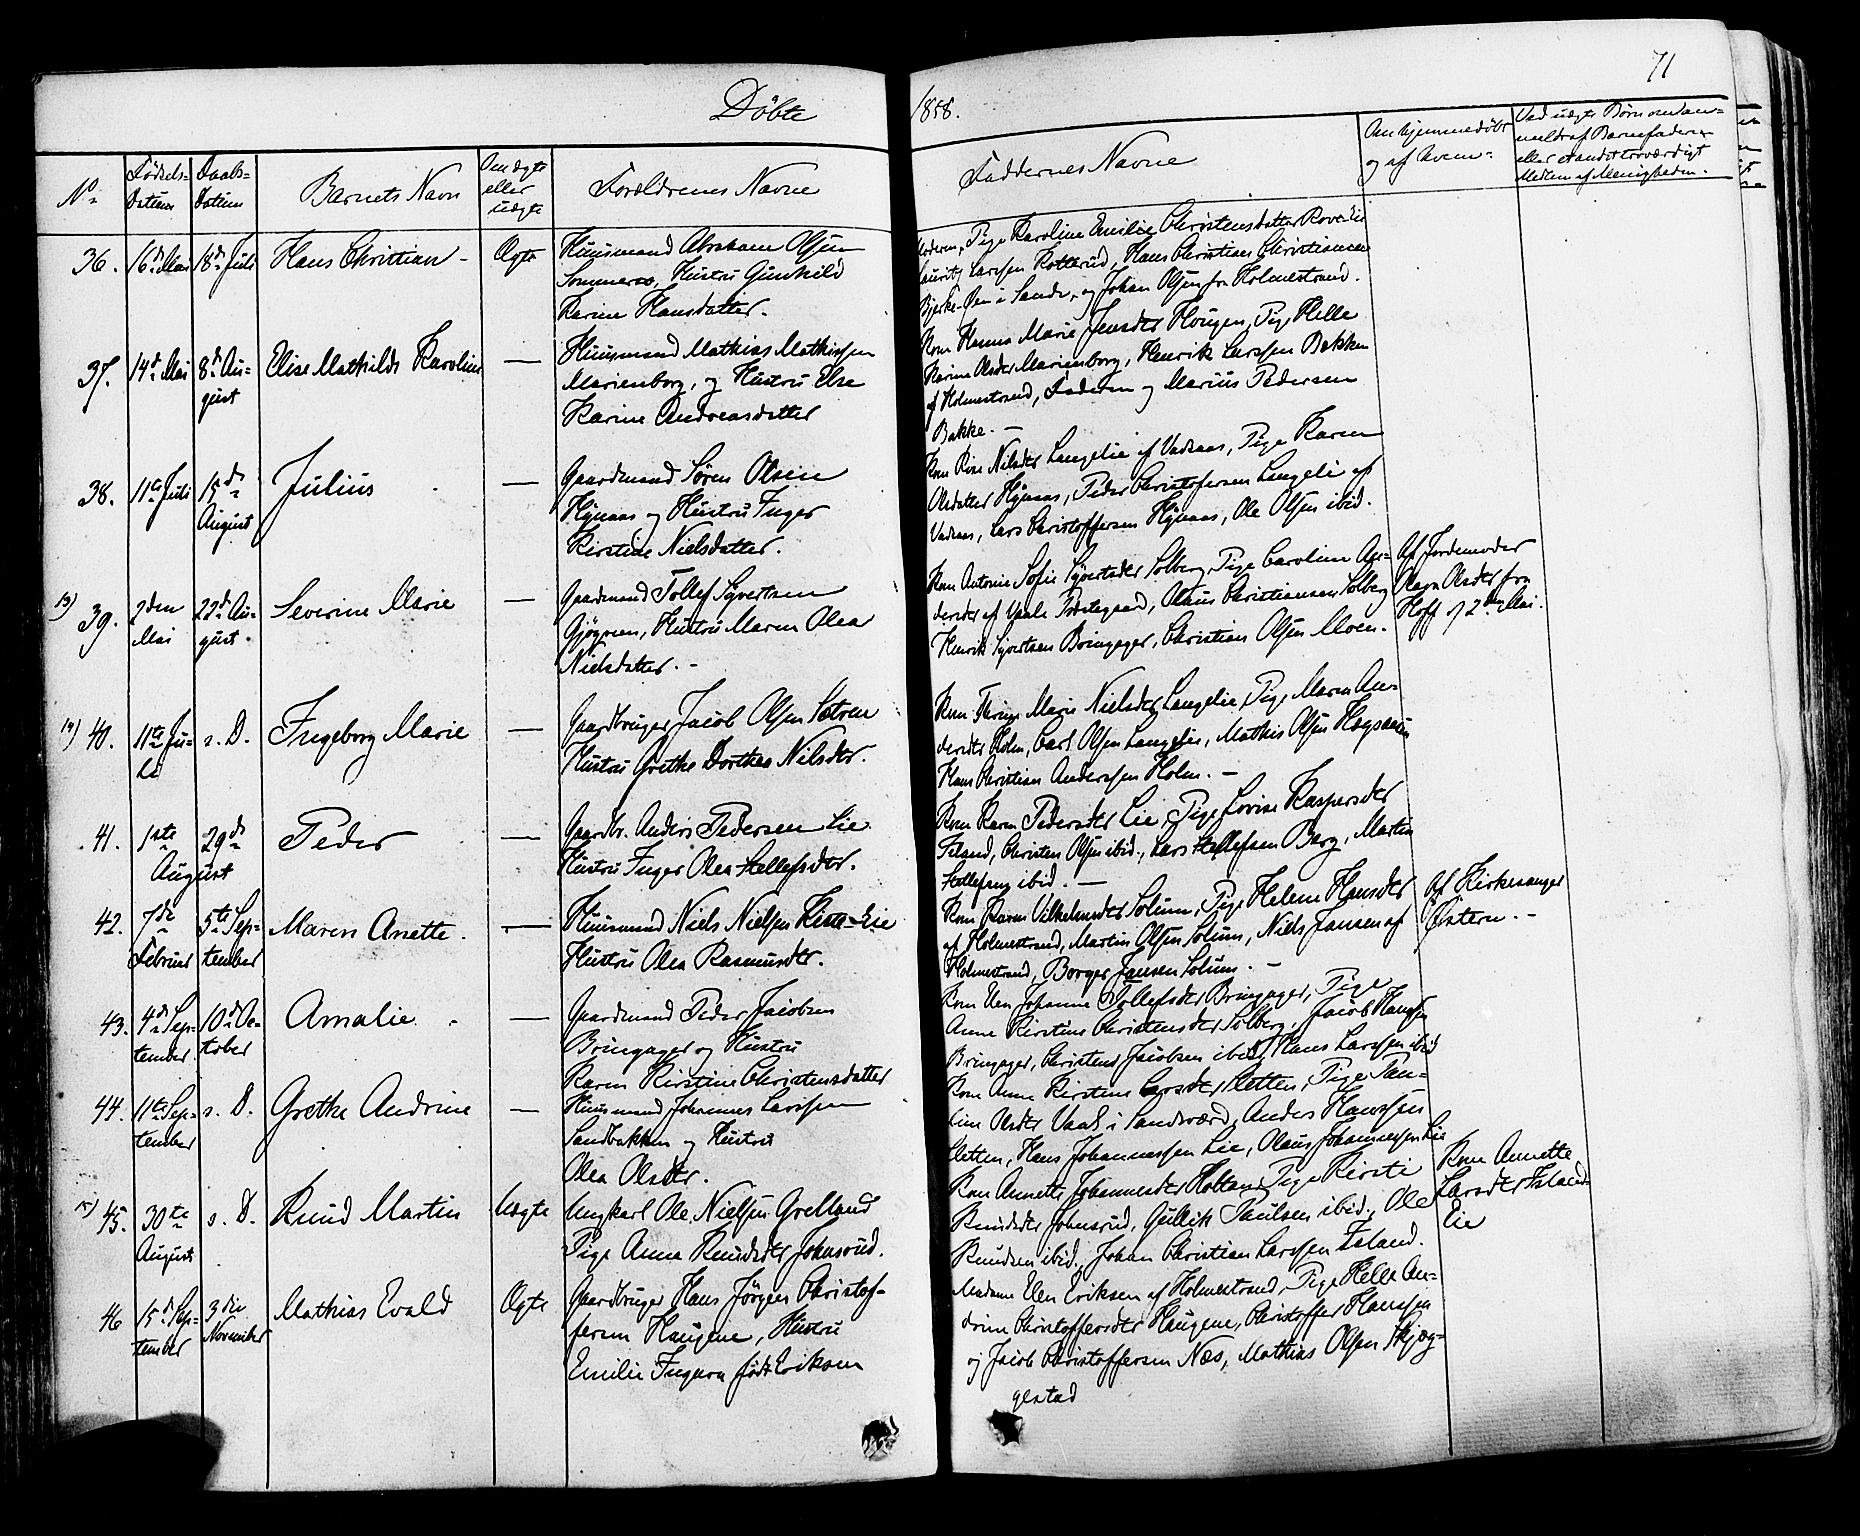 Døbte
1858.
71
No
Fødsels-
Datum
Daabs-
Datum
Barnets Navn
Om ægte
eller
uægte
Forældrenes Navne
Faddernes Navne
Om hjemmedøbt
og af hvem
Ved uægte Børn om an-
meldt af Barnefaderen
eller et andet troværdigt
Medlem af Menigheden.
36. 16de Mai 18de Juli Hans Christian Ægte
Huusmand Abraham Olsen
Hustru Gunhild
Karine Hansdatter.
Moderen, Pige Karoline Emilie Christensdatter
Lauritz Larssen Rotterud, Hans Christian Christiansen
i Sande, og Johan Olsen fra Holmestrand.
37. 14de Mai 8de Au-
gust
Elise Mathilde Karoline —
Huusmand Mathias Mathissen
Marienborg, og Hustru Else
Karine Andreasdatter
Kone Hanna Marie Jensdtr Hougen, Pige Helle
Karine Olsdtr Marienborg, Henrik Larssen Bakken
af Holmestrand, Faderen og Marius Pedersen
Bakke. —
38. 11te Juli 15de
August
Julius —
Gaardmand Søren Olsen
Hynaas og Hustru Inger
Kirstine Nielsdatter.
Kone Nilsdtr Langelie af Vadaas, Pige Karen
Olsdatter Hynaas, Peder Christofersen Langeli af
Vadaas, Lars Christoffersen Hynaas, Ole Olsen ibid.
13) 39. 2den
Mai
22de Au-
gust.
Severine Marie —
Gaardmand Tollef Syvertsen
Hustru Maren Olea
Nielsdatter. —
Kone Antonie Sofie Syvertsdtr Solberg, Pige Caroline An-
dersdtr af Præstegaard, Olaus Christiansen Solberg
Henrik Syvertsen Bringager, Christian Olsen Moen.
Af Jordemoder
Olsdtr fra
Hoff 2den Mai.
14) 40. 11te Ju-
li
s. D.
Ingeborg Marie —
Gaardbruger Jacob Olsen Sætren
Hustru Grethe Dorthea Nilsdtr.
Kone Marie Nielsdtr Langelie, Pige Maren An-
dersdtr Holm, Carl Olsen Langelie, Mathis Olsen
Hans Christian Anderssen Holm. —
41. 1ste
August
29de
Peder —
Gaardbr. Anders Pedersen Lie
Hustru Inger Olea Stellefsdtr.
Kone Karen Pedersdtr Lie, Pige Lovise Kaspersdtr
Island, Christen Olsen ibid., Lars Stellefsen Berg, Martin
Stellefsen ibid. —
42. 7de
Februar
5te Sep-
tember
Maren Anette. —
Huusmand Niels Nielsen Lie
Hustru Olea Rasmusdtr.
Kone Karen Vilhelmsdtr Solum, Pige Helene Hansdtr
af Holmestrand, Martin Olsen Solum, Niels Jansen af
Holmestrand, Borger Jansen Solum. —
Af Kirkesanger
Østern. —
43. 4de Sep-
tember
10de Oc-
tober
Amalie. —
Gaardmand Peder Jacobsen
Bringager og Hustru
Karen Kirstine Christensdatter
Kone Johanne Tollefsdtr Bringager, Pige
Anne Kirstine Christensdtr Solberg, Jacob Hanssen
Bringager, Christens Jacobsen ibid, Hans Larssen ibid
44. 11te Sep-
tember
s. D.
Grethe Andrine —
Huusmand Johannes Larssen
Sandbakken og Hustru
Olea Olsdtr.
Kone Anne Kirstine Larsdtr Sletten, Pige Pau-
line Olsdtr i Sandsværd, Anders Hanssen
Sletten, Hans Johannessen Lie, Olaus Johannessen Lie
15) 45. 30te
August
s. D.
Knud Martin Uægte
Ungkarl Ole Nielsen Grelland
Pige Anna Knudsdtr Johnsrud.
Kone Annette Johannesdtr Holtan, Pige Kirsti
Knudsdtr Johnsrud, Gullik Paulsen ibid., Ole
Knudsen ibid., Johan Christian Larssen Island.
Kone Annette
Larsdtr Island-
Lie
46 15de Sep-
tember
3die
November
Mathias Evald Ægte
Gaardbruger Hans Jörgen Christof-
fersen Haugene, Hustru
Emilie Ingeva født Eriksen
Madame Elen Eriksen af Holmestrand, Pige Helle An-
drine Christoffersdtr Haugene, Christoffer Hanssen
og Jacob Christoffersen Næs, Mathias Olsen Skjeg-
gestad